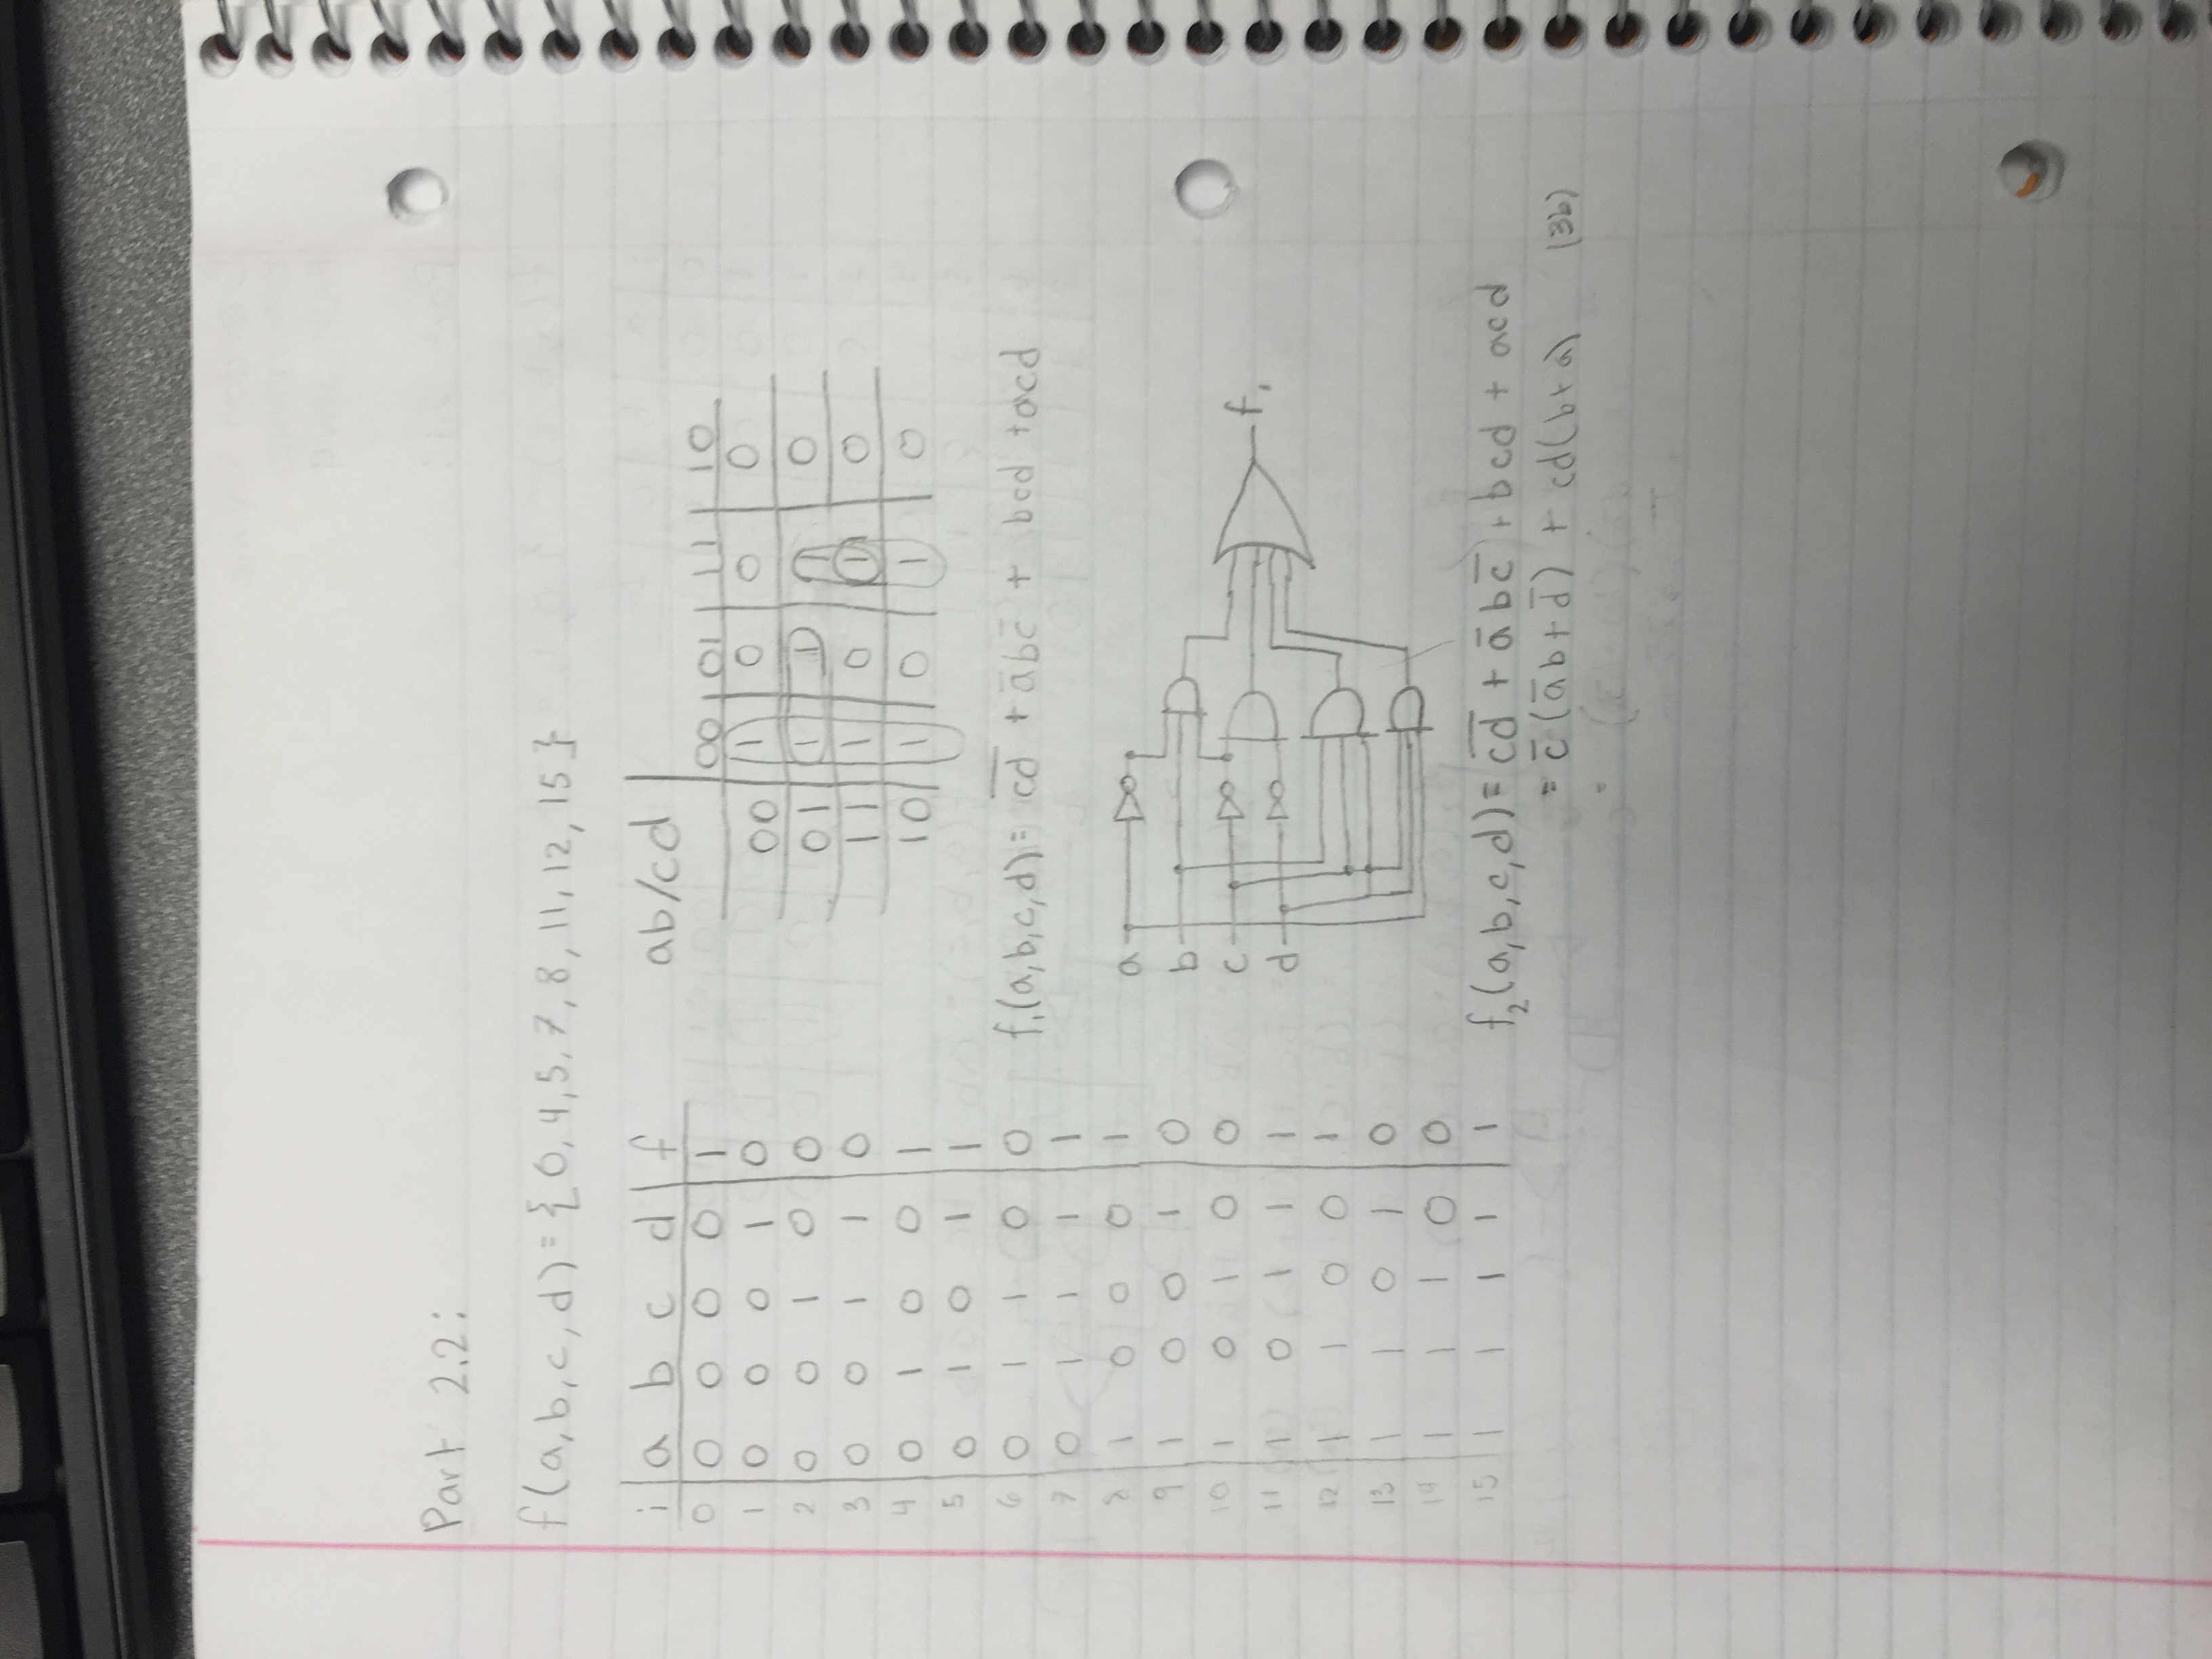 Part 2.2:
f(a,b,c,d) = { 0, 4, 5, 7, 8, 11, 12, 15 }
i a b c d f
0 0 0 0 0 1
1 0 0 0 1 0
2 0 0 1 0 0
3 0 0 1 1 0
4 0 1 0 0 1
5 0 1 0 1 1
6 0 1 1 0 0
7 0 1 1 1 1
8 1 0 0 0 1
9 1 0 0 1 0
10 1 0 1 0 0
11 1 0 1 1 1
12 1 1 0 0 1
13 1 1 0 1 0
14 1 1 1 0 0
15 1 1 1 1 1
ab/cd
00 01 11 10
00 1 0 0 0
01 1 1 1 0
11 1 0 1 0
10 1 0 1 0
f₁(a,b,c,d) = c̅d̅ + a̅bc̅ + bcd + acd
a
b
c
d
f₁
f₂(a,b,c,d) = c̅d̅ + a̅bc̅ + bcd + acd
= c̅(a̅b + d̅) + cd(b+a) (3b)
=